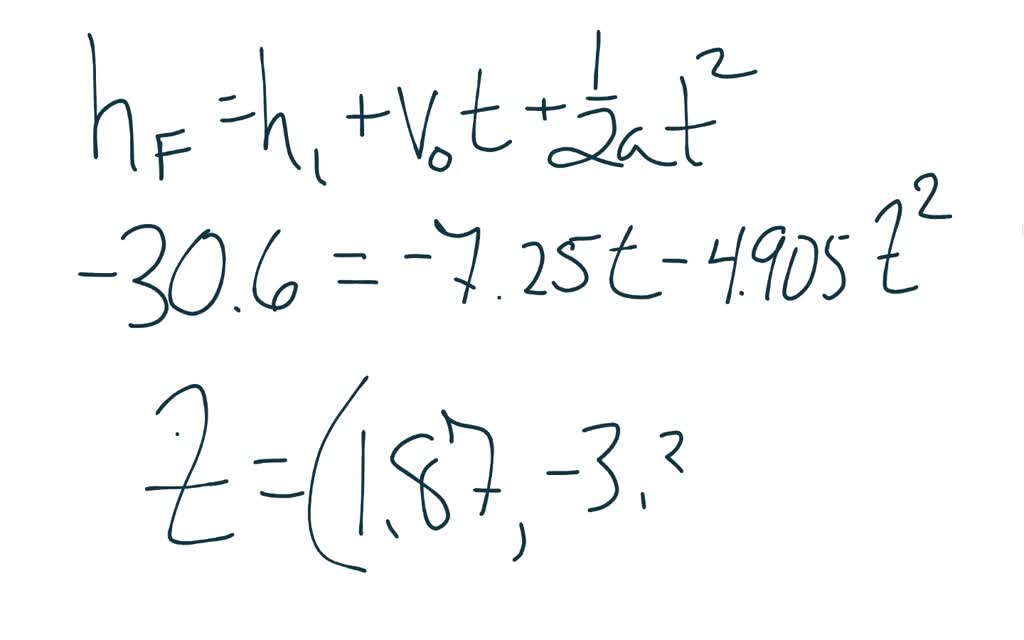 h_F = h_1 + V_0 t + 1/2 a t^2
-30.6 = -7.25t - 4.905 t^2
t = (1.87, -3.3